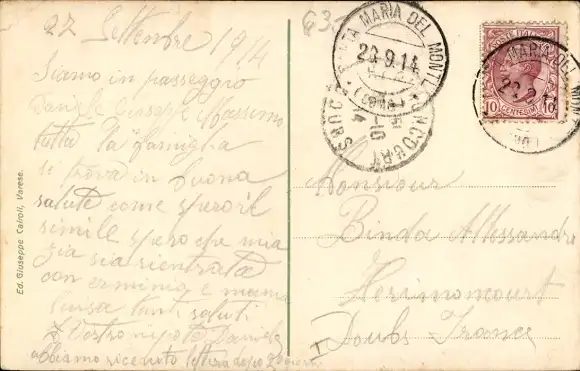 27 Settembre 1914
Siamo in passeggio
Daniele Giuseppe Massimo
tutta la famiglia
si trova in buona
salute come spero il
simile spero che mia
zia sia rientrata
con erminia e mama
luisa tanti saluti
Vostro nipote Daniele
abbiamo ricevuto lettera dopo
Ed. Giuseppe Cairoli, Varese.
SANTA MARIA DEL MONTE
29.9.14
(COMO)
HERIMONCOURT
DOUBS
10
CENTESIMI
MARIA DEL MON
Monsieur
Binda Allessandro
Herimoncourt
Doubs France